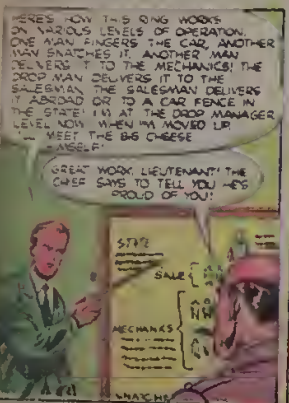 HERE'S HOW THIS RING WORKS
ON VARIOUS LEVELS OF OPERATION.
ONE MAN FINGERS THE CAR, ANOTHER
MAN SNATCHES IT. ANOTHER MAN
DELIVERS IT TO THE MECHANICS! THE
DROP MAN DELIVERS IT TO THE
SALESMAN. THE SALESMAN DELIVERS
IT ABROAD OR TO A CAR FENCE IN
THE STATE! I'M AT THE DROP MANAGER
LEVEL NOW. WHEN I'M MOVED UP
MEET THE BIG CHEESE
GREAT WORK, LIEUTENANT! THE
CHIEF SAYS TO TELL YOU HE'S
PROUD OF YOU!
STATE
SALE
MECHANICS
SNATCHE